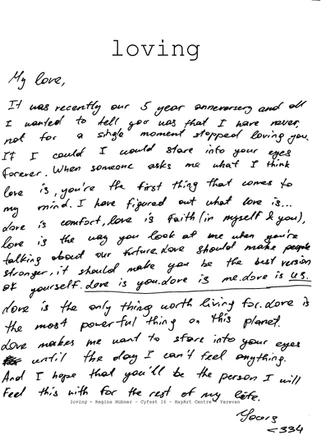 loving
My love,
It was recently our 5 year anniversary and all
I wanted to tell you was that I have never,
not for a single moment stopped loving you.
If I could I would stare into your eyes
forever. When someone asks me what I think
love is, you're the first thing that comes to
my mind. I have figured out what love is...
Love is comfort, love is faith (in myself & you),
love is the way you look at me when you're
talking about our future. Love should make people
stronger, it should make you be the best version
of yourself. Love is you. Love is me. Love is us.
Love is the only thing worth living for. Love is
the most powerful thing on this planet.
Love makes me want to stare into your eyes
until the day I can't feel anything.
And I hope that you'll be the person I will
feel this with for the rest of my life.
loving - Regina Hübner - Cyfest 16 - HayArt Centre - Yerevan
Yours
<334